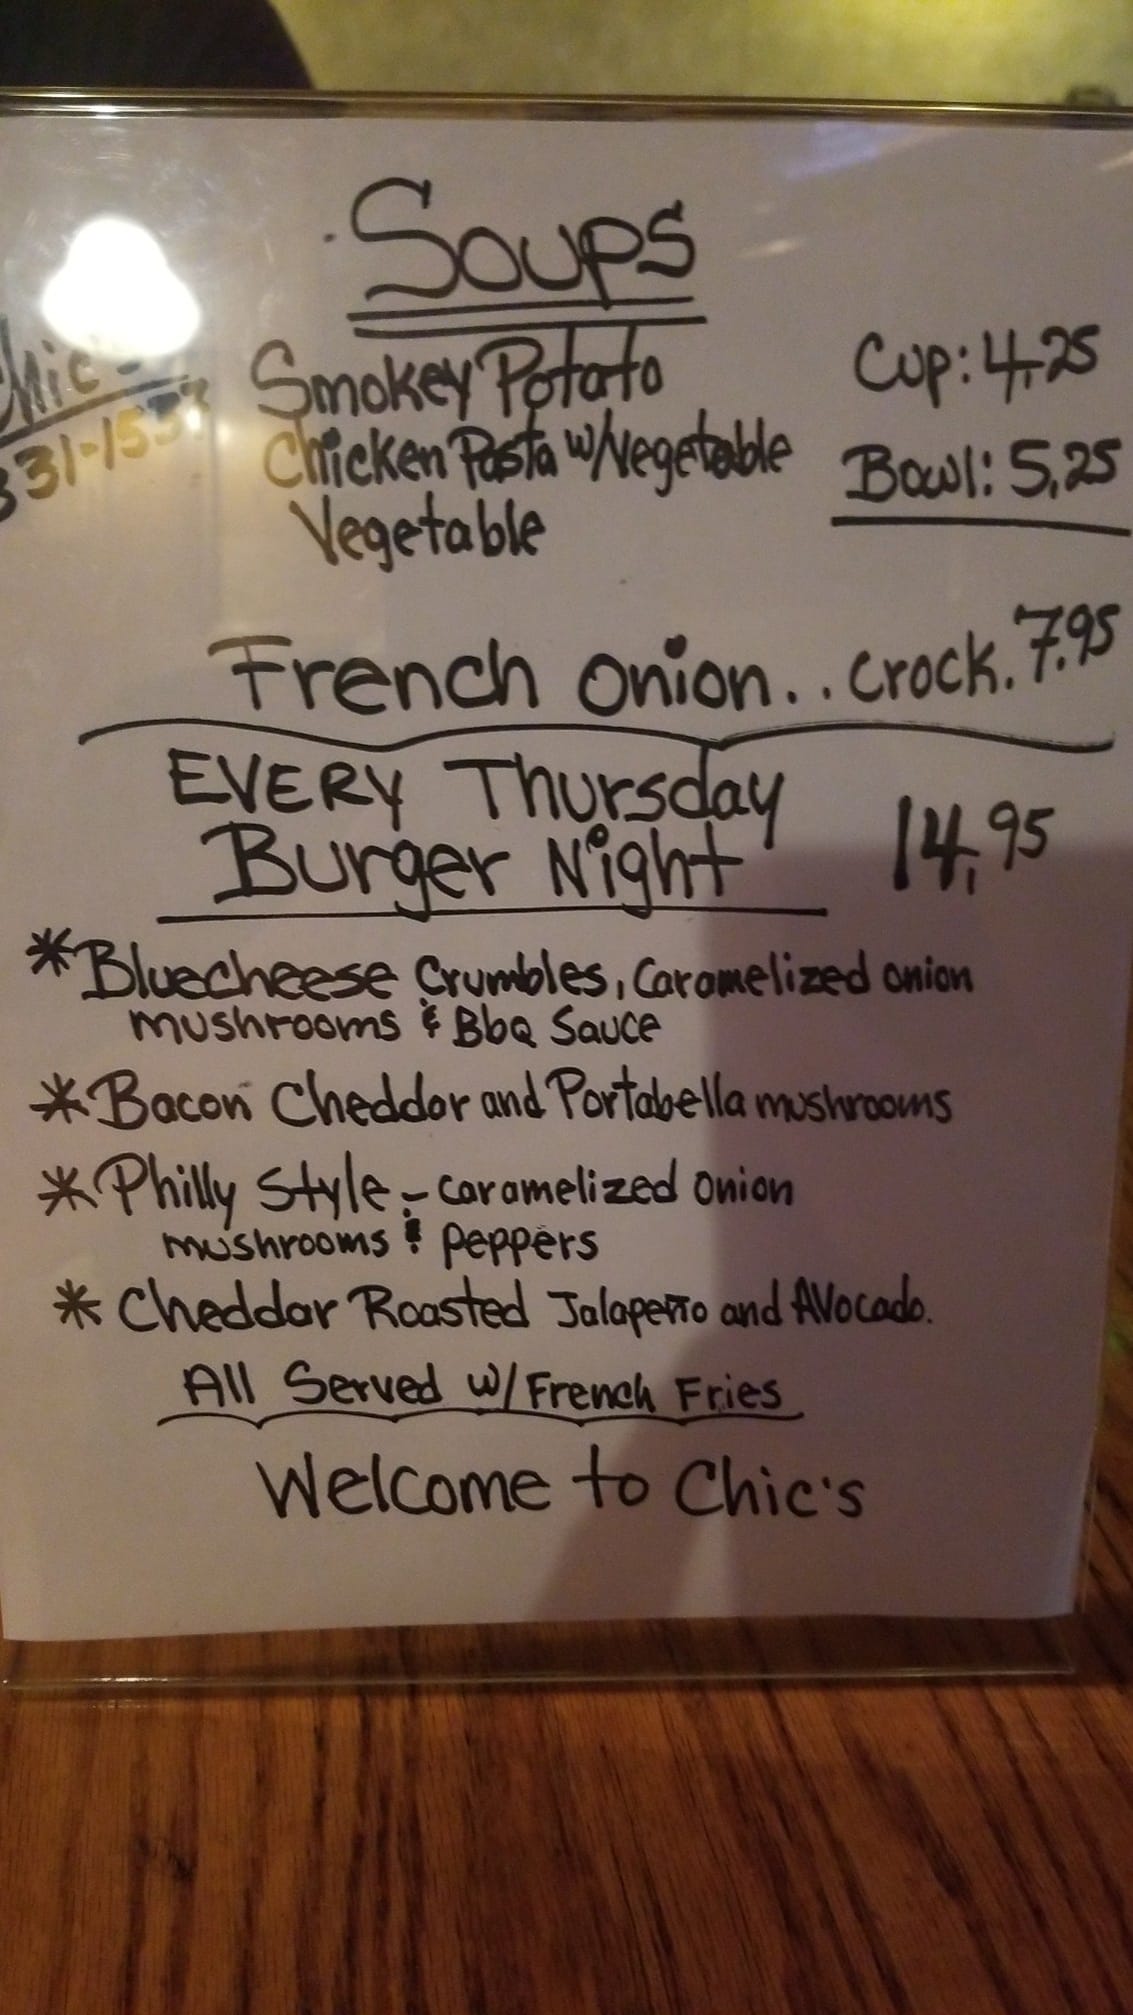 Soups
Smokey Potato
Cup: 4.25
Chicken Pasta w/Vegetable
Bowl: 5.25
Vegetable
French Onion.. Crock. 7.95
EVERY Thursday
Burger Night
14.95
* Bluecheese Crumbles, Caramelized onion
mushrooms & BbQ Sauce
* Bacon Cheddar and Portabella mushrooms
* Philly Style - caramelized onion
mushrooms & peppers
* Cheddar Roasted Jalapeño and Avocado.
All Served w/French Fries
Welcome to Chic's